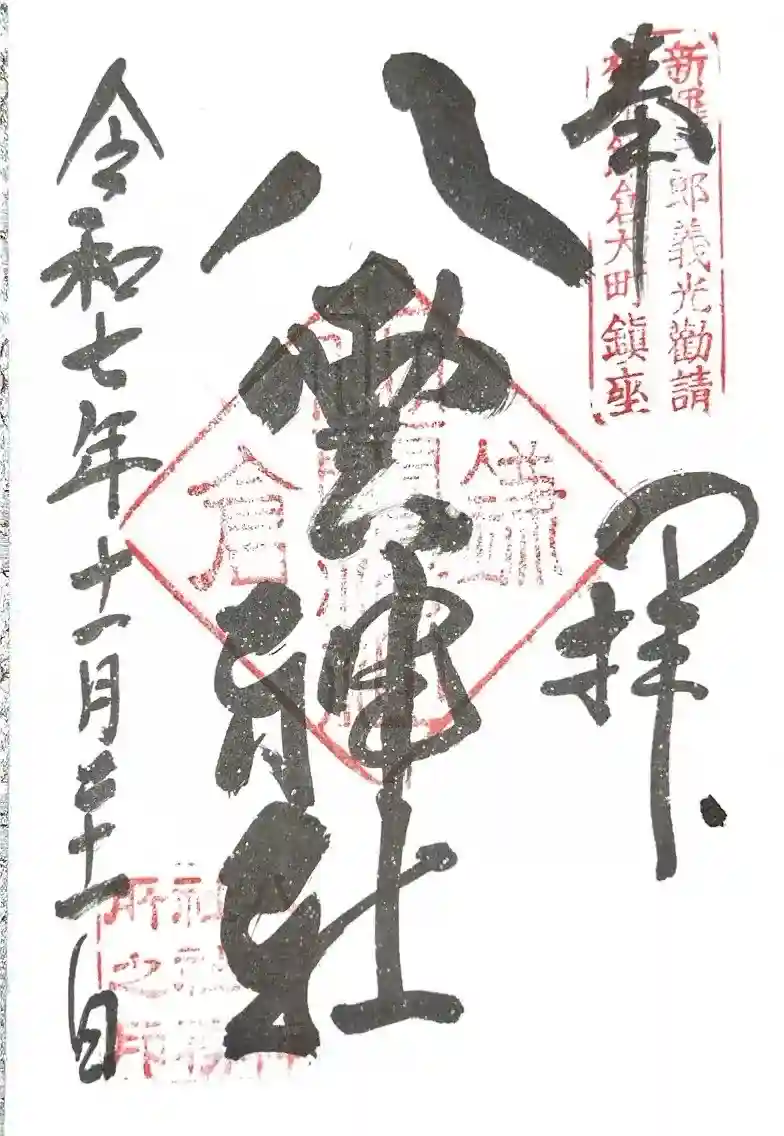 奉拝
新羅三郎義光勸請
鎌倉大町鎮座
八雲神社
鎌倉
令和七年十一月二十一日
所之印